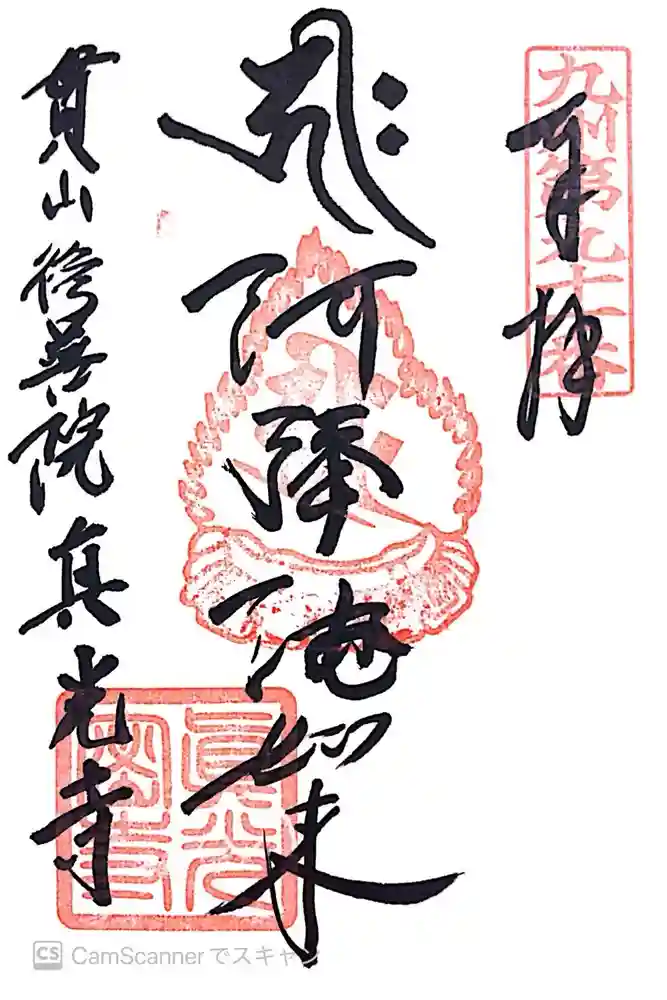 九州第九十一番
奉拝
ह्रीः
阿弥陀如来
貫山 院 真光寺
眞光
寺
CS CamScannerでスキャン